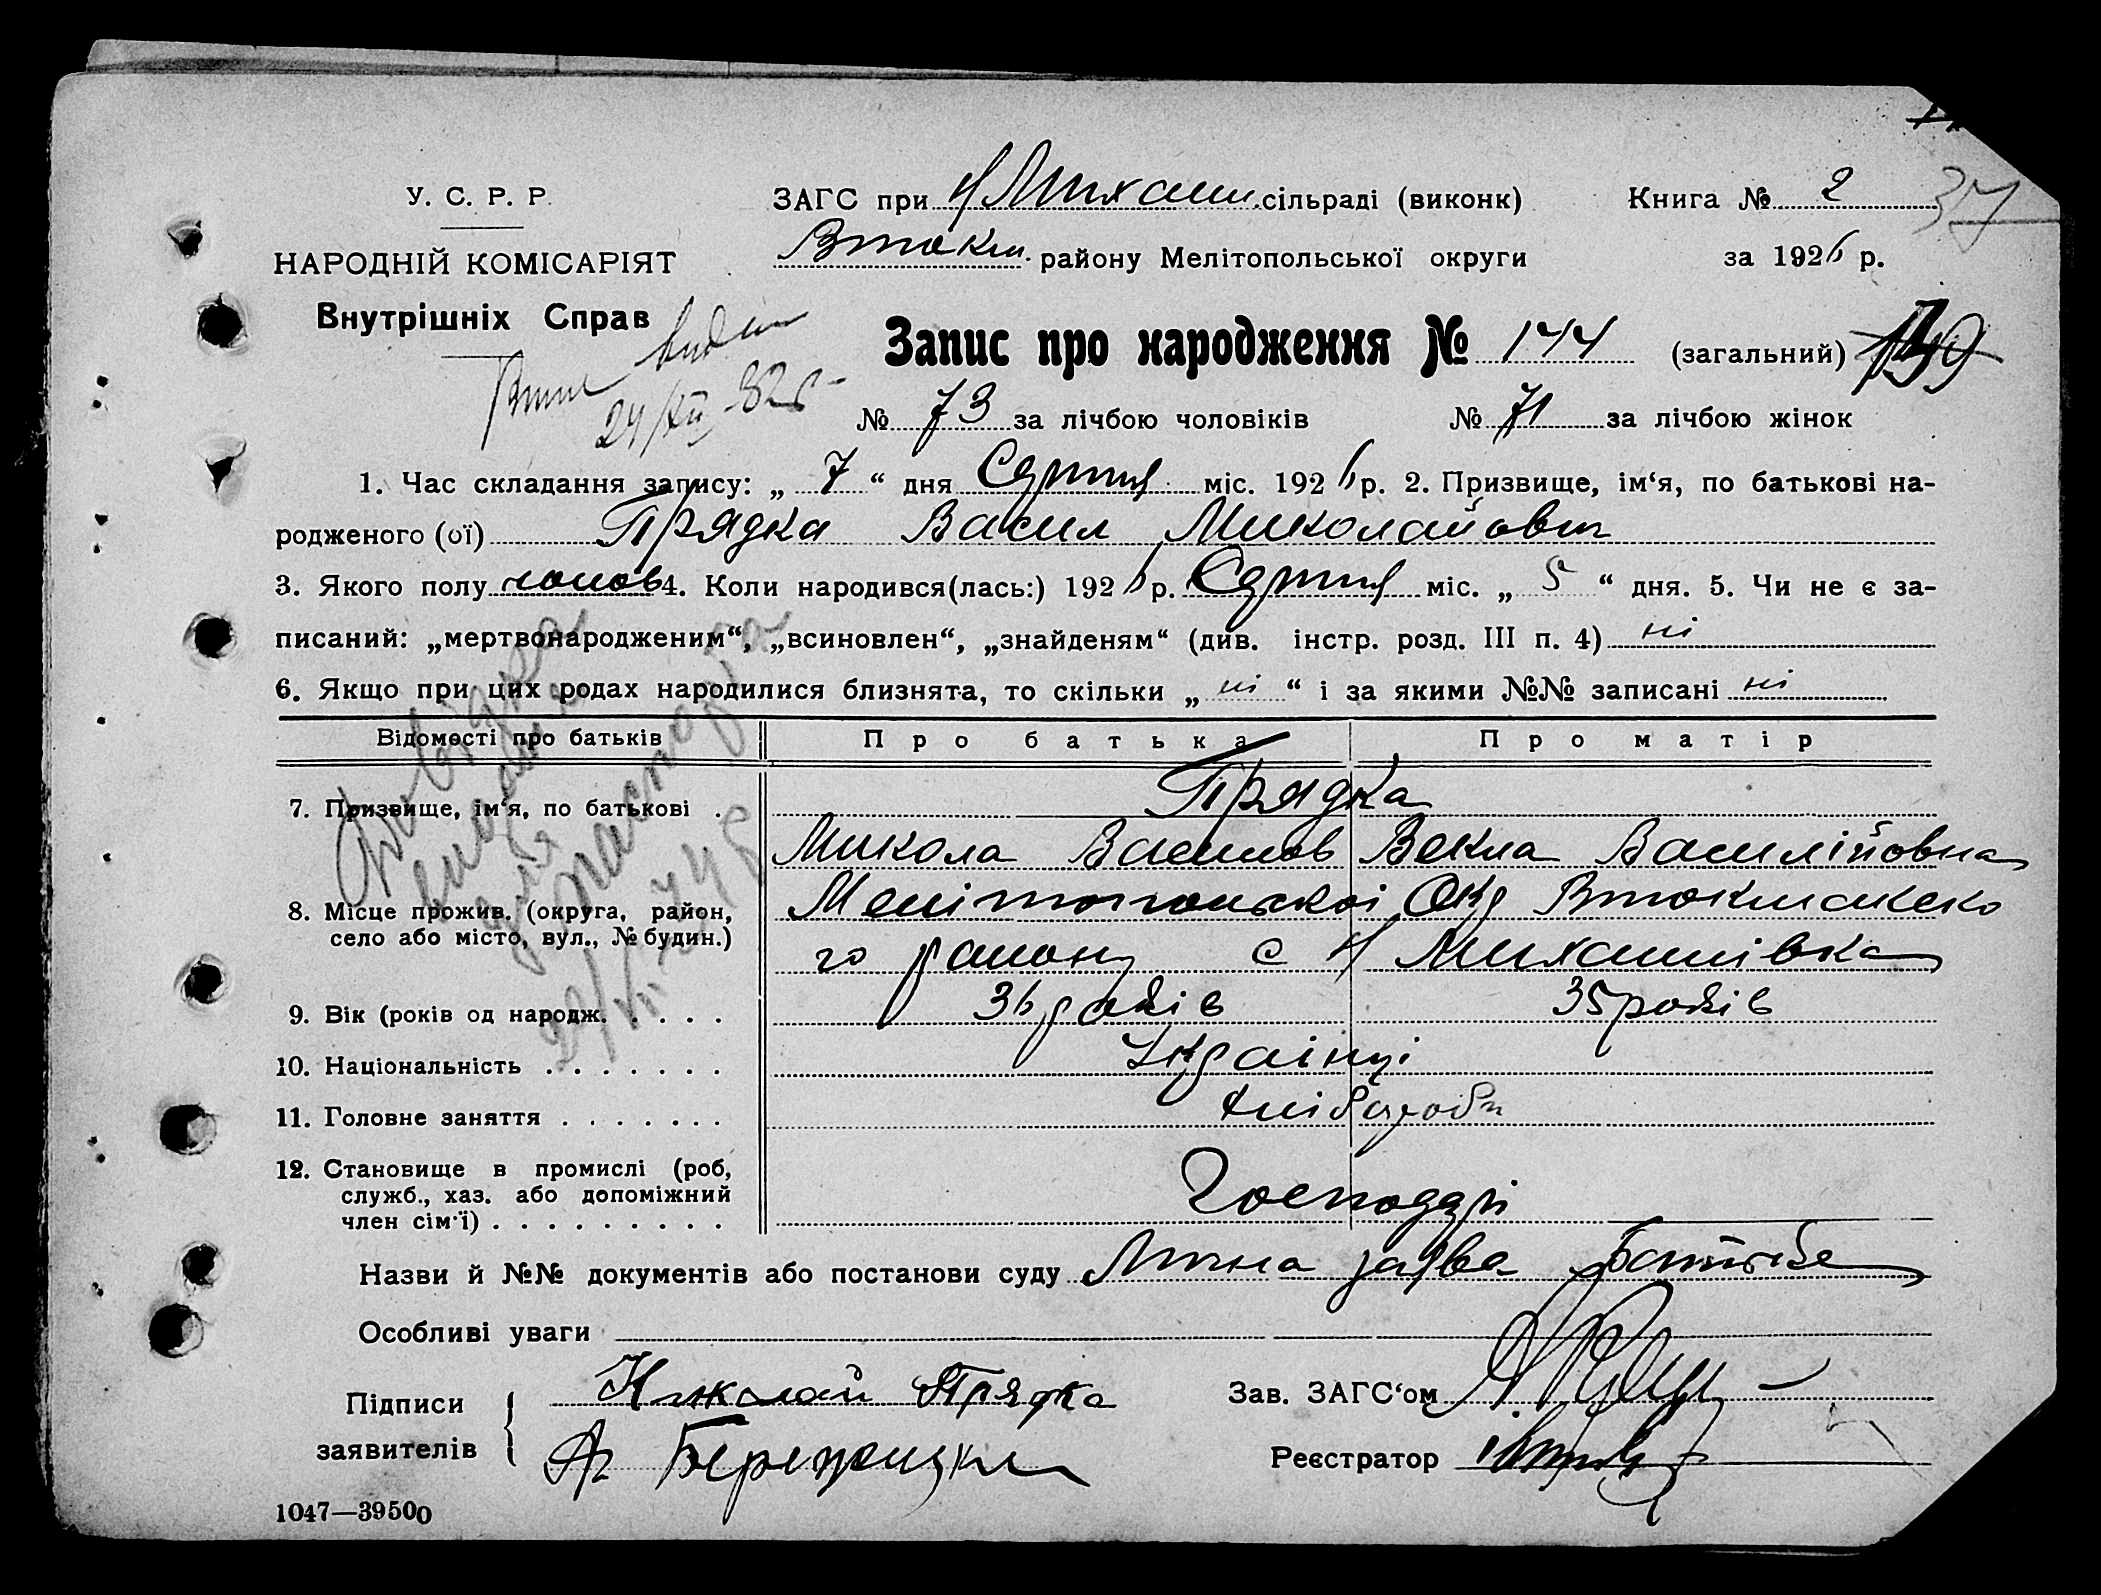 У. С. Р. Р.
НАРОДНІЙ КОМІСАРІЯТ
Внутрішніх Справ
ЗАГС при Н Михайл. сільраді (виконк)
Втокм. району Мелітопольської округи
Книга № 2
37
за 1926 р.
24/XII-32 г
Запис про народження № 144 (загальний) 139
№ 73 за лічбою чоловіків № 71 за лічбою жінок
1. Час складання запису: „ 7 “ дня Серпня міс. 1926 р. 2. Призвище, ім‘я, по батькові на-
родженого (ої) Прядка Васил Миколайович
3. Якого полу чолов 4. Коли народився(лась:) 1926 р. Серпня міс. „ 5 “ дня. 5. Чи не є за-
писаний: „мертвонародженим“, „всиновлен“, „знайденям“ (див. інстр. розд. III п. 4) ні
6. Якщо при цих родах народилися близнята, то скільки „ ні “ і за якими №№ записані ні
Довідка
видана
для
паспорта
Відомості про батьків Про батька Про матір
7. Призвище, ім‘я, по батькові . Прядка
Микола Васильов Векла Василійовна
8. Місце прожив. (округа, район, Мелітопольскоі Окр Втокмакско
село або місто, вул., № будин.) го району с Н Михайлівка
9. Вік (років од народж. . . . . 36 років 35 років
10. Національність . . . . . . . Українці
11. Головне заняття . . . . . . . хліборобы
12. Становище в промислі (роб,
служб., хаз. або допоміжний
член сім‘ї) . . . . . . . . . Господарі
Назви й №№ документів або постанови суду Лична заява батька
Особливі уваги
Підписи
заявителів
Николай Прядка
Зав. ЗАГС‘ом
Реєстратор
1047—39500